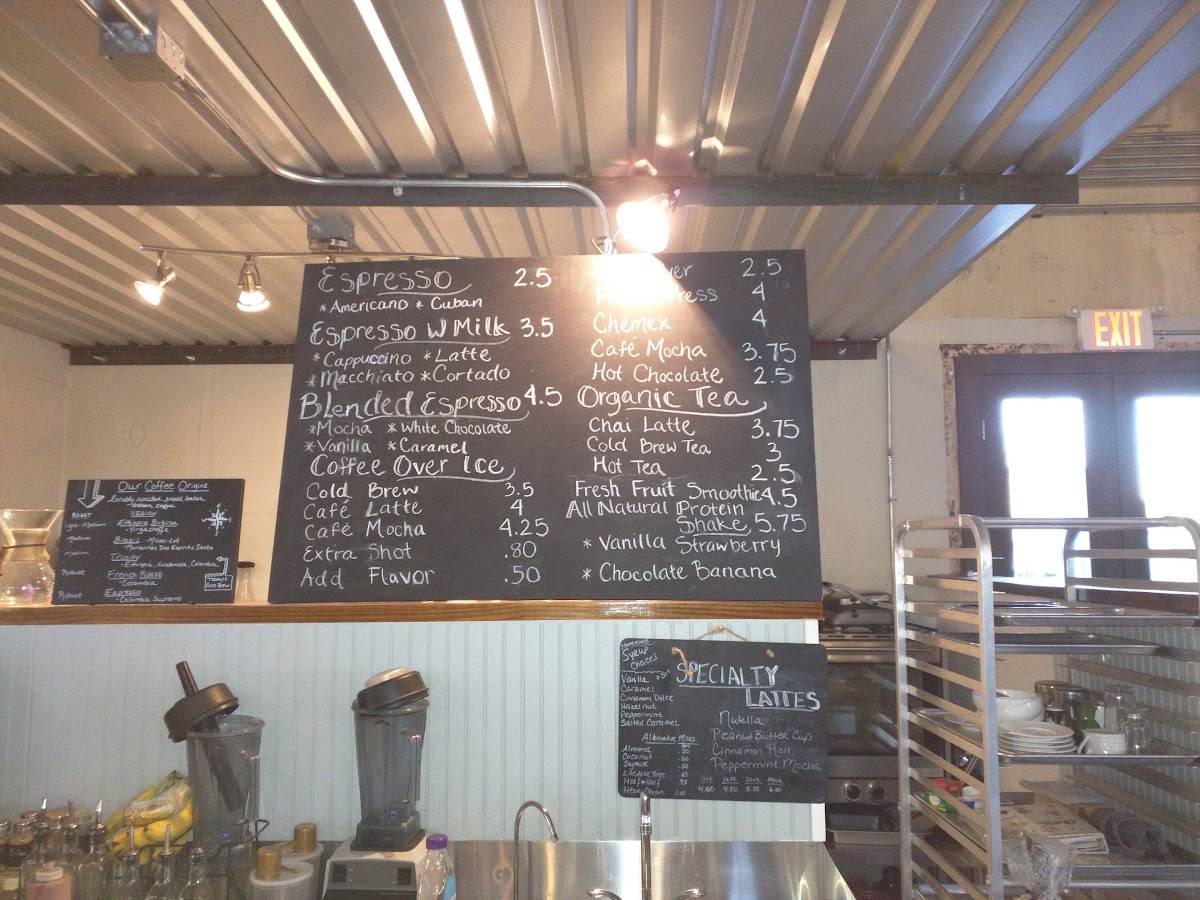 EXIT
Espresso 2.5
* Americano * Cuban
Espresso W Milk 3.5
* Cappuccino * Latte
* Macchiato * Cortado
Blended Espresso 4.5
* Mocha * White Chocolate
* Vanilla * Caramel
Coffee Over Ice
Cold Brew 3.5
Café Latte 4
Café Mocha 4.25
Extra Shot .80
Add Flavor .50
2.5
4
Chemex 4
Café Mocha 3.75
Hot Chocolate 2.5
Organic Tea
Chai Latte 3.75
Cold Brew Tea 3
Hot Tea 2.5
Fresh Fruit Smoothie 4.5
All Natural Protein
Shake 5.75
* Vanilla Strawberry
* Chocolate Banana
Our Coffee Origins
locally roasted small batch
Roast Region
Medium Brazil
Ethiopia, Guatemala, Colombia
Robust French Roast
Colombia
Robust Espresso
Colombia Supremo
Syrup
Choices
Vanilla
Caramel
Cinnamon Dolce
Hazelnut
Peppermint
Salted Caramel
Alternative Milks
Almond .50
Coconut .50
Soymilk .50
Lactose Free
Half & Half
Specialty
Lattes
Nutella
Peanut Butter Cup
Cinnamon Roll
Peppermint Mocha